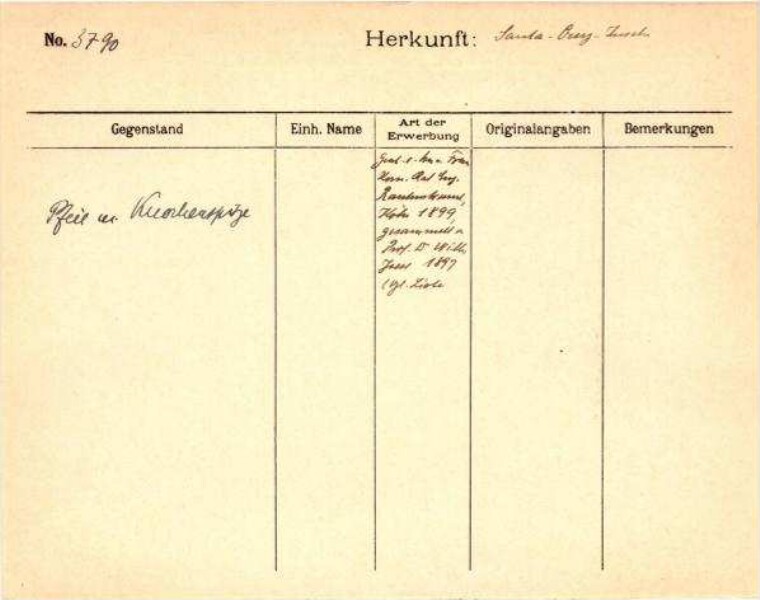 No. 3790
Herkunft: Santa-Cruz-Inseln
Gegenstand
Einh. Name
Art der
Erwerbung
Originalangaben
Bemerkungen
Pfeil m. Knochenspitze
Frau
Rautenstrauch,
Köln 1899,
gesammelt v.
Prof. Dr. Wilh.
Joest 1897
(vgl. Liste